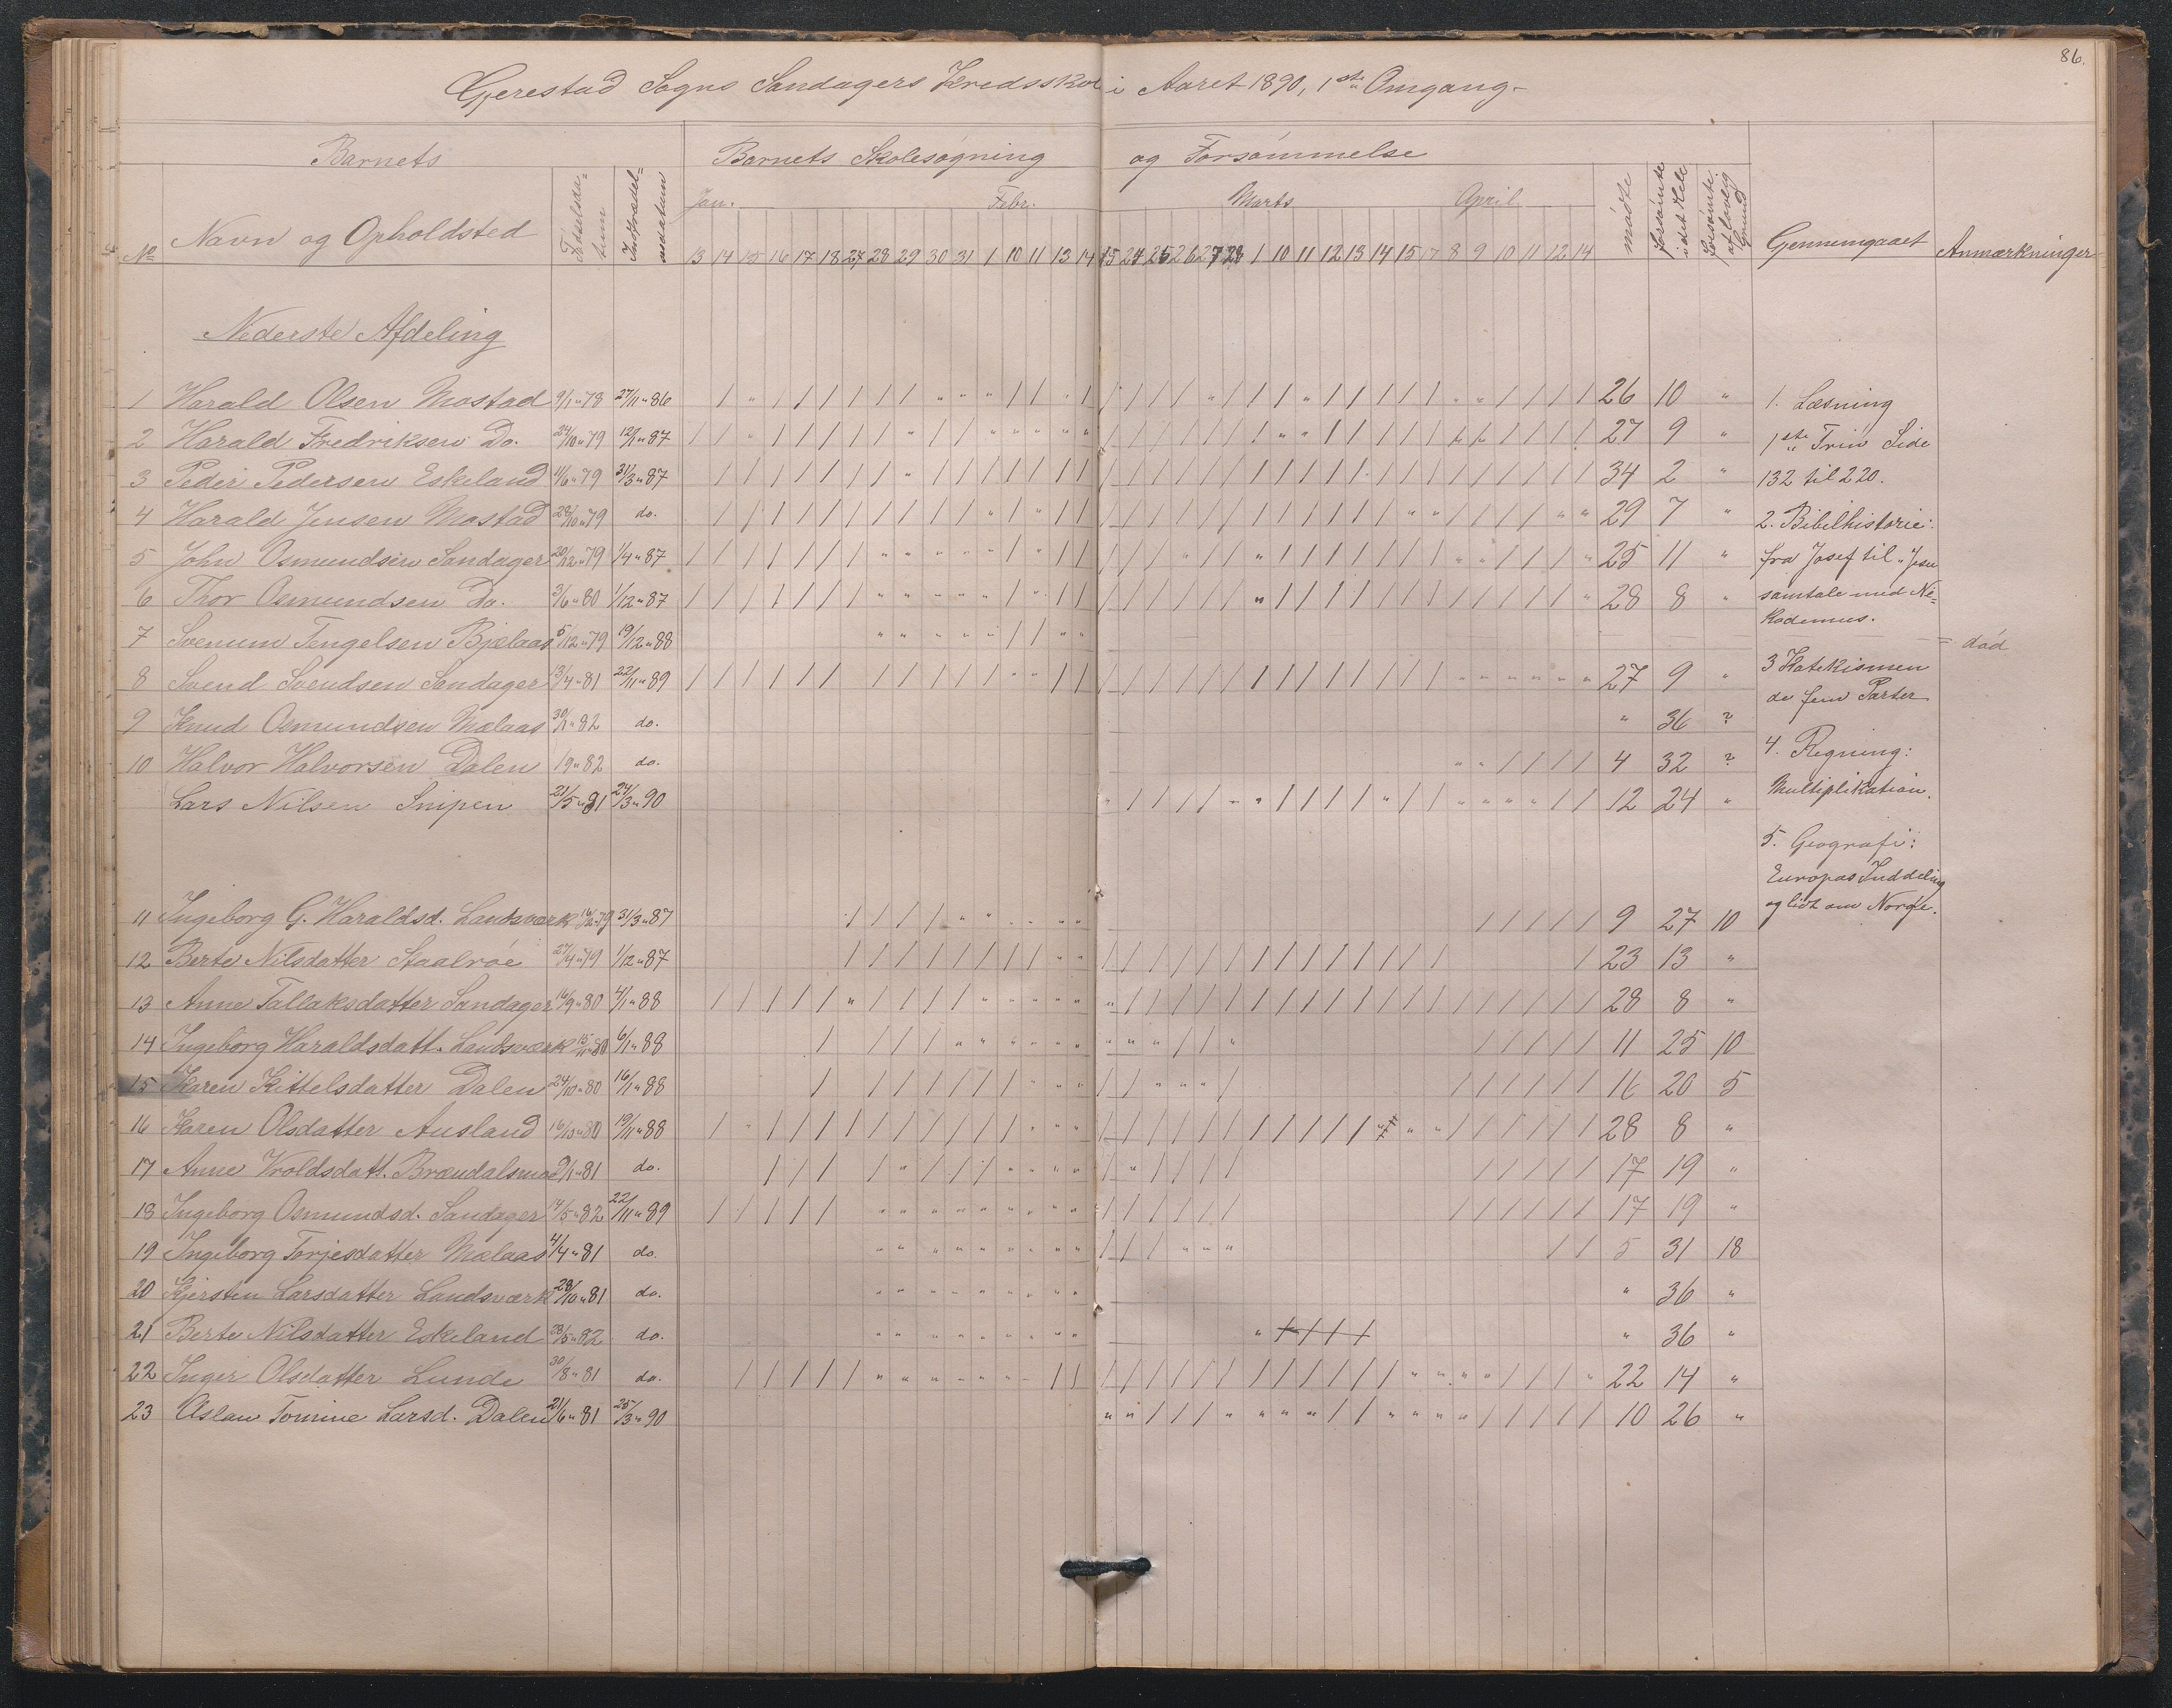 86.
Gjerestad Sogns Sandagers Kredsskole i Aaret 1890, 1ste Omgang.
Barnets
Barnets Skolesøgning og Forsømmelse
No
Navn og Opholdsted
Fødselsda=tum
Indtrædel=sesdatum
Jan. Febr. Marts April
13 14 15 16 17 18 27 28 29 30 31 1 10 11 13 14 15 24 25 26 27 28 1 10 11 12 13 14 15 17 8 9 10 11 12 14
mødte
forsømte i det Hele
forsømte af lovlig Grund
Gjennemgaaet
Anmærkninger
Nederste Afdeling
1 Harald Olsen Mostad 9/1 " 78 27/11 " 86 26 10 "
2 Harald Fredriksen Do. 24/10 " 79 12/1 " 87 27 9 "
3 Peder Pedersen Eskeland 11/6 " 79 31/3 " 87 34 2 "
4 Harald Jensen Mostad 28/10 " 79 do. 29 7 "
5 John Osmundsen Sandager 20/12 " 79 1/4 " 87 25 11 "
6 Thor Osmundsen Do. 3/6 " 80 1/12 " 87 28 8 "
7 Svenum Tengelsen Bjelaas 5/12 " 79 19/12 " 88 = død
8 Svend Svendsen Sandager 13/4 " 81 22/11 " 89 27 9 "
9 Knud Osmundsen Mælaas 30/1 " 82 do. " 36 ?
10 Halvor Halvorsen Dalen 19 " 82 do. 4 32 ?
Lars Nilsen Snipen 21/5 " 81 24/3 " 90 12 24 "
11 Ingeborg G. Haraldsd. Landsværk 79 31/3 " 87 9 27 10
12 Berte Nilsdatter Staalrøe 27/4 " 79 1/12 " 87 23 13 "
13 Anne Tallaksdatter Sandager 16/9 " 80 4/1 " 88 28 8 "
14 Ingeborg Haraldsdatt. Landsværk 15/11 " 80 6/1 " 88 11 25 10
15 Karen Kittelsdatter Dalen 24/10 " 80 16/1 " 88 16 20 5
16 Karen Olsdatter Ausland 80 19/11 " 88 28 8 "
17 Anne Vroldsdatt. Brændalsmo 9/1 " 81 do. 17 19 "
18 Ingeborg Osmundsd. Sandager 14/5 " 82 22/11 " 89 17 19 "
19 Ingeborg Torjesdatter Mælaas 4/4 " 81 do. 5 31 18
20 Kjersten Larsdatter Landsværk 28/10 " 81 do. " 36 "
21 Berte Nilsdatter Eskeland 28/5 " 82 do. " 36 "
22 Inger Olsdatter Lunde 30/8 " 81 do. 22 14 "
23 Aslau Tomine Larsd. Dalen 21/6 " 81 25/3 " 90 10 26 "
1. Læsning
1ste Trin Side
132 til 220.
2. Bibelhistorie:
fra Josef til "Jesu
samtale med Ni=
kodemus.
3 Katekismen
de fem Parter
4. Regning:
Multiplikation.
5. Geografi:
Europas Inddeling
og lidt om Norge.